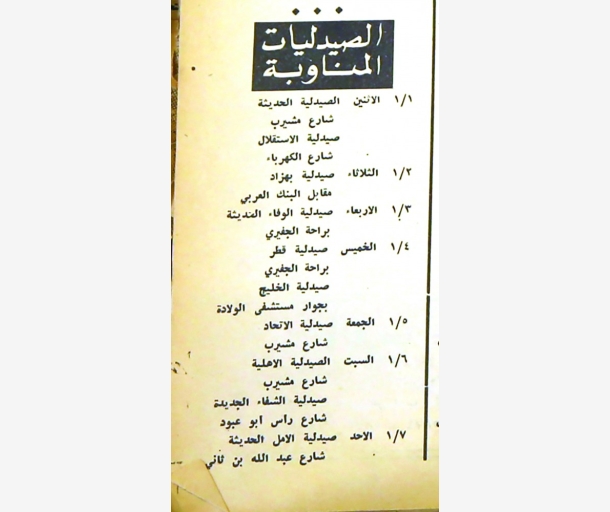 الصيدليات
المناوبة
١/١ الاثنين الصيدلية الحديثة
شارع مشيرب
صيدلية الاستقلال
شارع الكهرباء
١/٢ الثلاثاء صيدلية بهزاد
مقابل البنك العربي
١/٣ الاربعاء صيدلية الوفاء الحديثة
براحة الجفيري
١/٤ الخميس صيدلية قطر
براحة الجفيري
صيدلية الخليج
بجوار مستشفى الولادة
١/٥ الجمعة صيدلية الاتحاد
شارع مشيرب
١/٦ السبت الصيدلية الاهلية
شارع مشيرب
صيدلية الشفاء الجديدة
شارع راس ابو عبود
١/٧ الاحد صيدلية الامل الحديثة
شارع عبد الله بن ثاني